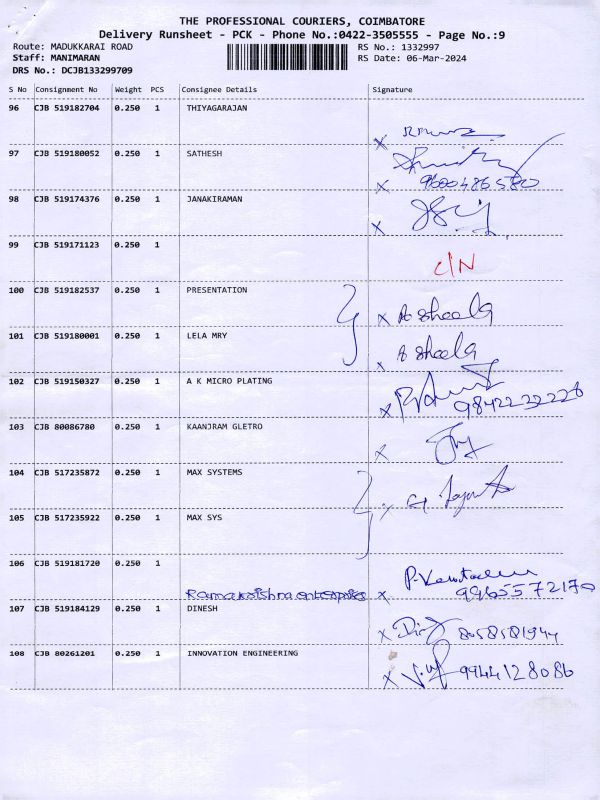 THE PROFESSIONAL COURIERS, COIMBATORE
Delivery Runsheet - PCK - Phone No.:0422-3505555 - Page No.:9
Route: MADUKKARAI ROAD RS No.: 1332997
Staff: MANIMARAN RS Date: 06-Mar-2024
DRS No.: DCJB133299709
S No Consignment No Weight PCS Consignee Details Signature
96 CJB 519182704 0.250 1 THIYAGARAJAN
x
97 CJB 519180052 0.250 1 SATHESH
x 9600486580
98 CJB 519174376 0.250 1 JANAKIRAMAN
x
99 CJB 519171123 0.250 1
C/N
100 CJB 519182537 0.250 1 PRESENTATION
x A sheela
101 CJB 519180001 0.250 1 LELA MRY
x A sheela
102 CJB 519150327 0.250 1 A K MICRO PLATING
x 9842222226
103 CJB 80086780 0.250 1 KAANJRAM GLETRO
x
104 CJB 517235872 0.250 1 MAX SYSTEMS
x
105 CJB 517235922 0.250 1 MAX SYS
106 CJB 519181720 0.250 1
Ramakrishna enterprises x 9965572170
107 CJB 519184129 0.250 1 DINESH
x
108 CJB 80261201 0.250 1 INNOVATION ENGINEERING
x 9944128086